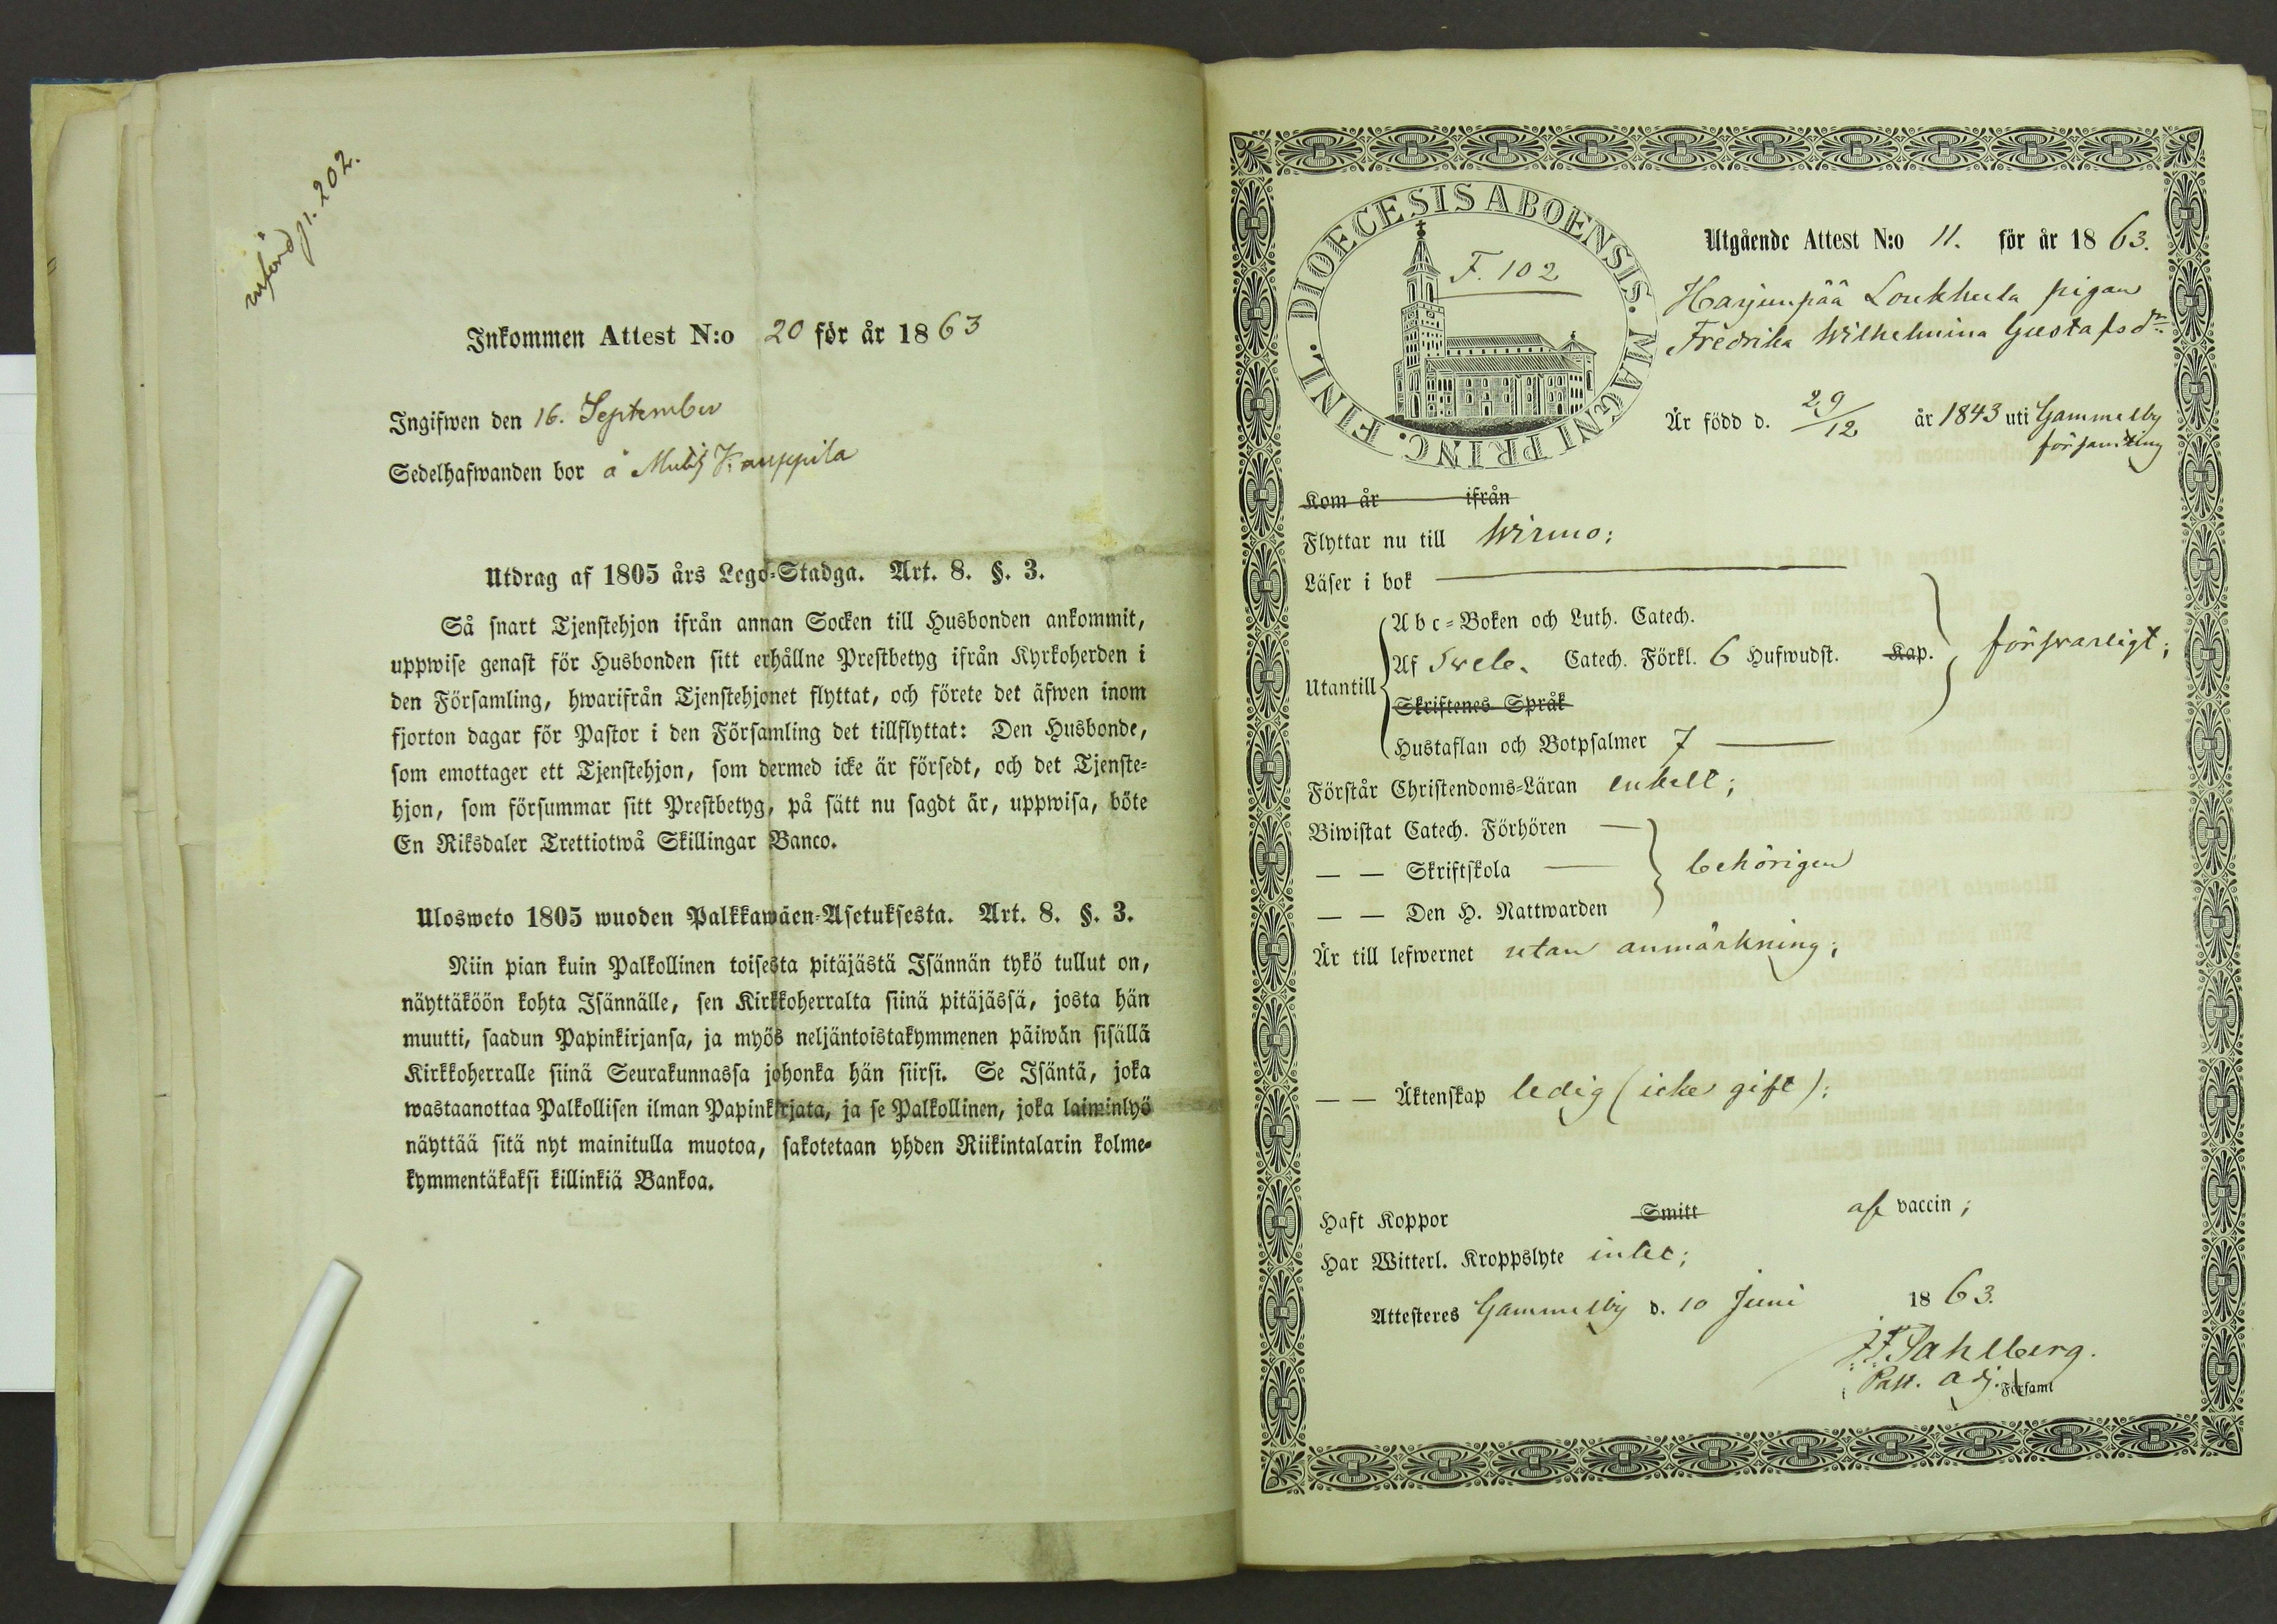 införd p. 202.
Inkommen Attest N:o 20 för år 1863
Ingifwen den 16. September
Sedelhafwanden bor å Kauppila
Utdrag af 1805 års Lego-Stadga. Art. 8. §. 3.
Så snart Tjenstehjon ifrån annan Socken till Husbonden ankommit,
uppwise genast för Husbonden sitt erhållne Prestbetyg ifrån Kyrkoherden i
den Församling, hwarifrån Tjenstehjonet flyttat, och förete det äfwen inom
fjorton dagar för Pastor i den Församling det tillflyttat: Den Husbonde,
som emottager ett Tjenstehjon, som dermed icke är försedt, och det Tjenste-
hjon, som försummar sitt Prestbetyg, på sätt nu sagdt är, uppwisa, böte
En Riksdaler Trettiotwå Skillingar Banco.
Ulosweto 1805 wuoden Palkkawäen-Asetuksesta. Art. 8. §. 3.
Niin pian kuin Palkollinen toisesta pitäjästä Isännän tykö tullut on,
näyttäköön kohta Isännälle, sen Kirkkoherralta siinä pitäjässä, josta hän
muutti, saadun Papinkirjansa, ja myös neljäntoistakymmenen päiwän sisällä
Kirkkoherralle siinä Seurakunnassa johonka hän siirsi. Se Isäntä, joka
wastaanottaa Palkollisen ilman Papinkirjata, ja se Palkollinen, joka laiminlyö
näyttää sitä nyt mainitulla muotoa, sakotetaan yhden Riikintalarin kolme-
kymmentäkaksi killinkiä Bankoa.
DIOECESIS ABOENSIS. MAGNI PRINC. FINL.
F. 102
Utgående Attest N:o 11. för år 1863.
Harjunpää Loukhula pigan
Fredrika Wilhelmina Gustafsdr
Är född d. 29/12 år 1843 uti Gammelby
församling
Kom år ifrån
Flyttar nu till Wirmo;
Läser i bok
Abc-Boken och Luth. Catech.
Utantill
Af Sveb. Catech. Förkl. 6 Hufwudst. Kap. försvarligt;
Skriftenes Språk
Hustaflan och Botpsalmer 7
Förstår Christendoms-Läran enkelt;
Biwistat Catech. Förhören
— — Skriftskola behörigen
— — Den H. Nattwarden
Är till lefwernet utan anmärkning;
— — Äktenskap ledig (icke gift);
Haft Koppor Smitt af vaccin;
Har Witterl. Kroppslyte intet;
Attesteres Gammelby d. 10 Juni 1863.
Sahlberg.
Past. adj. Församl